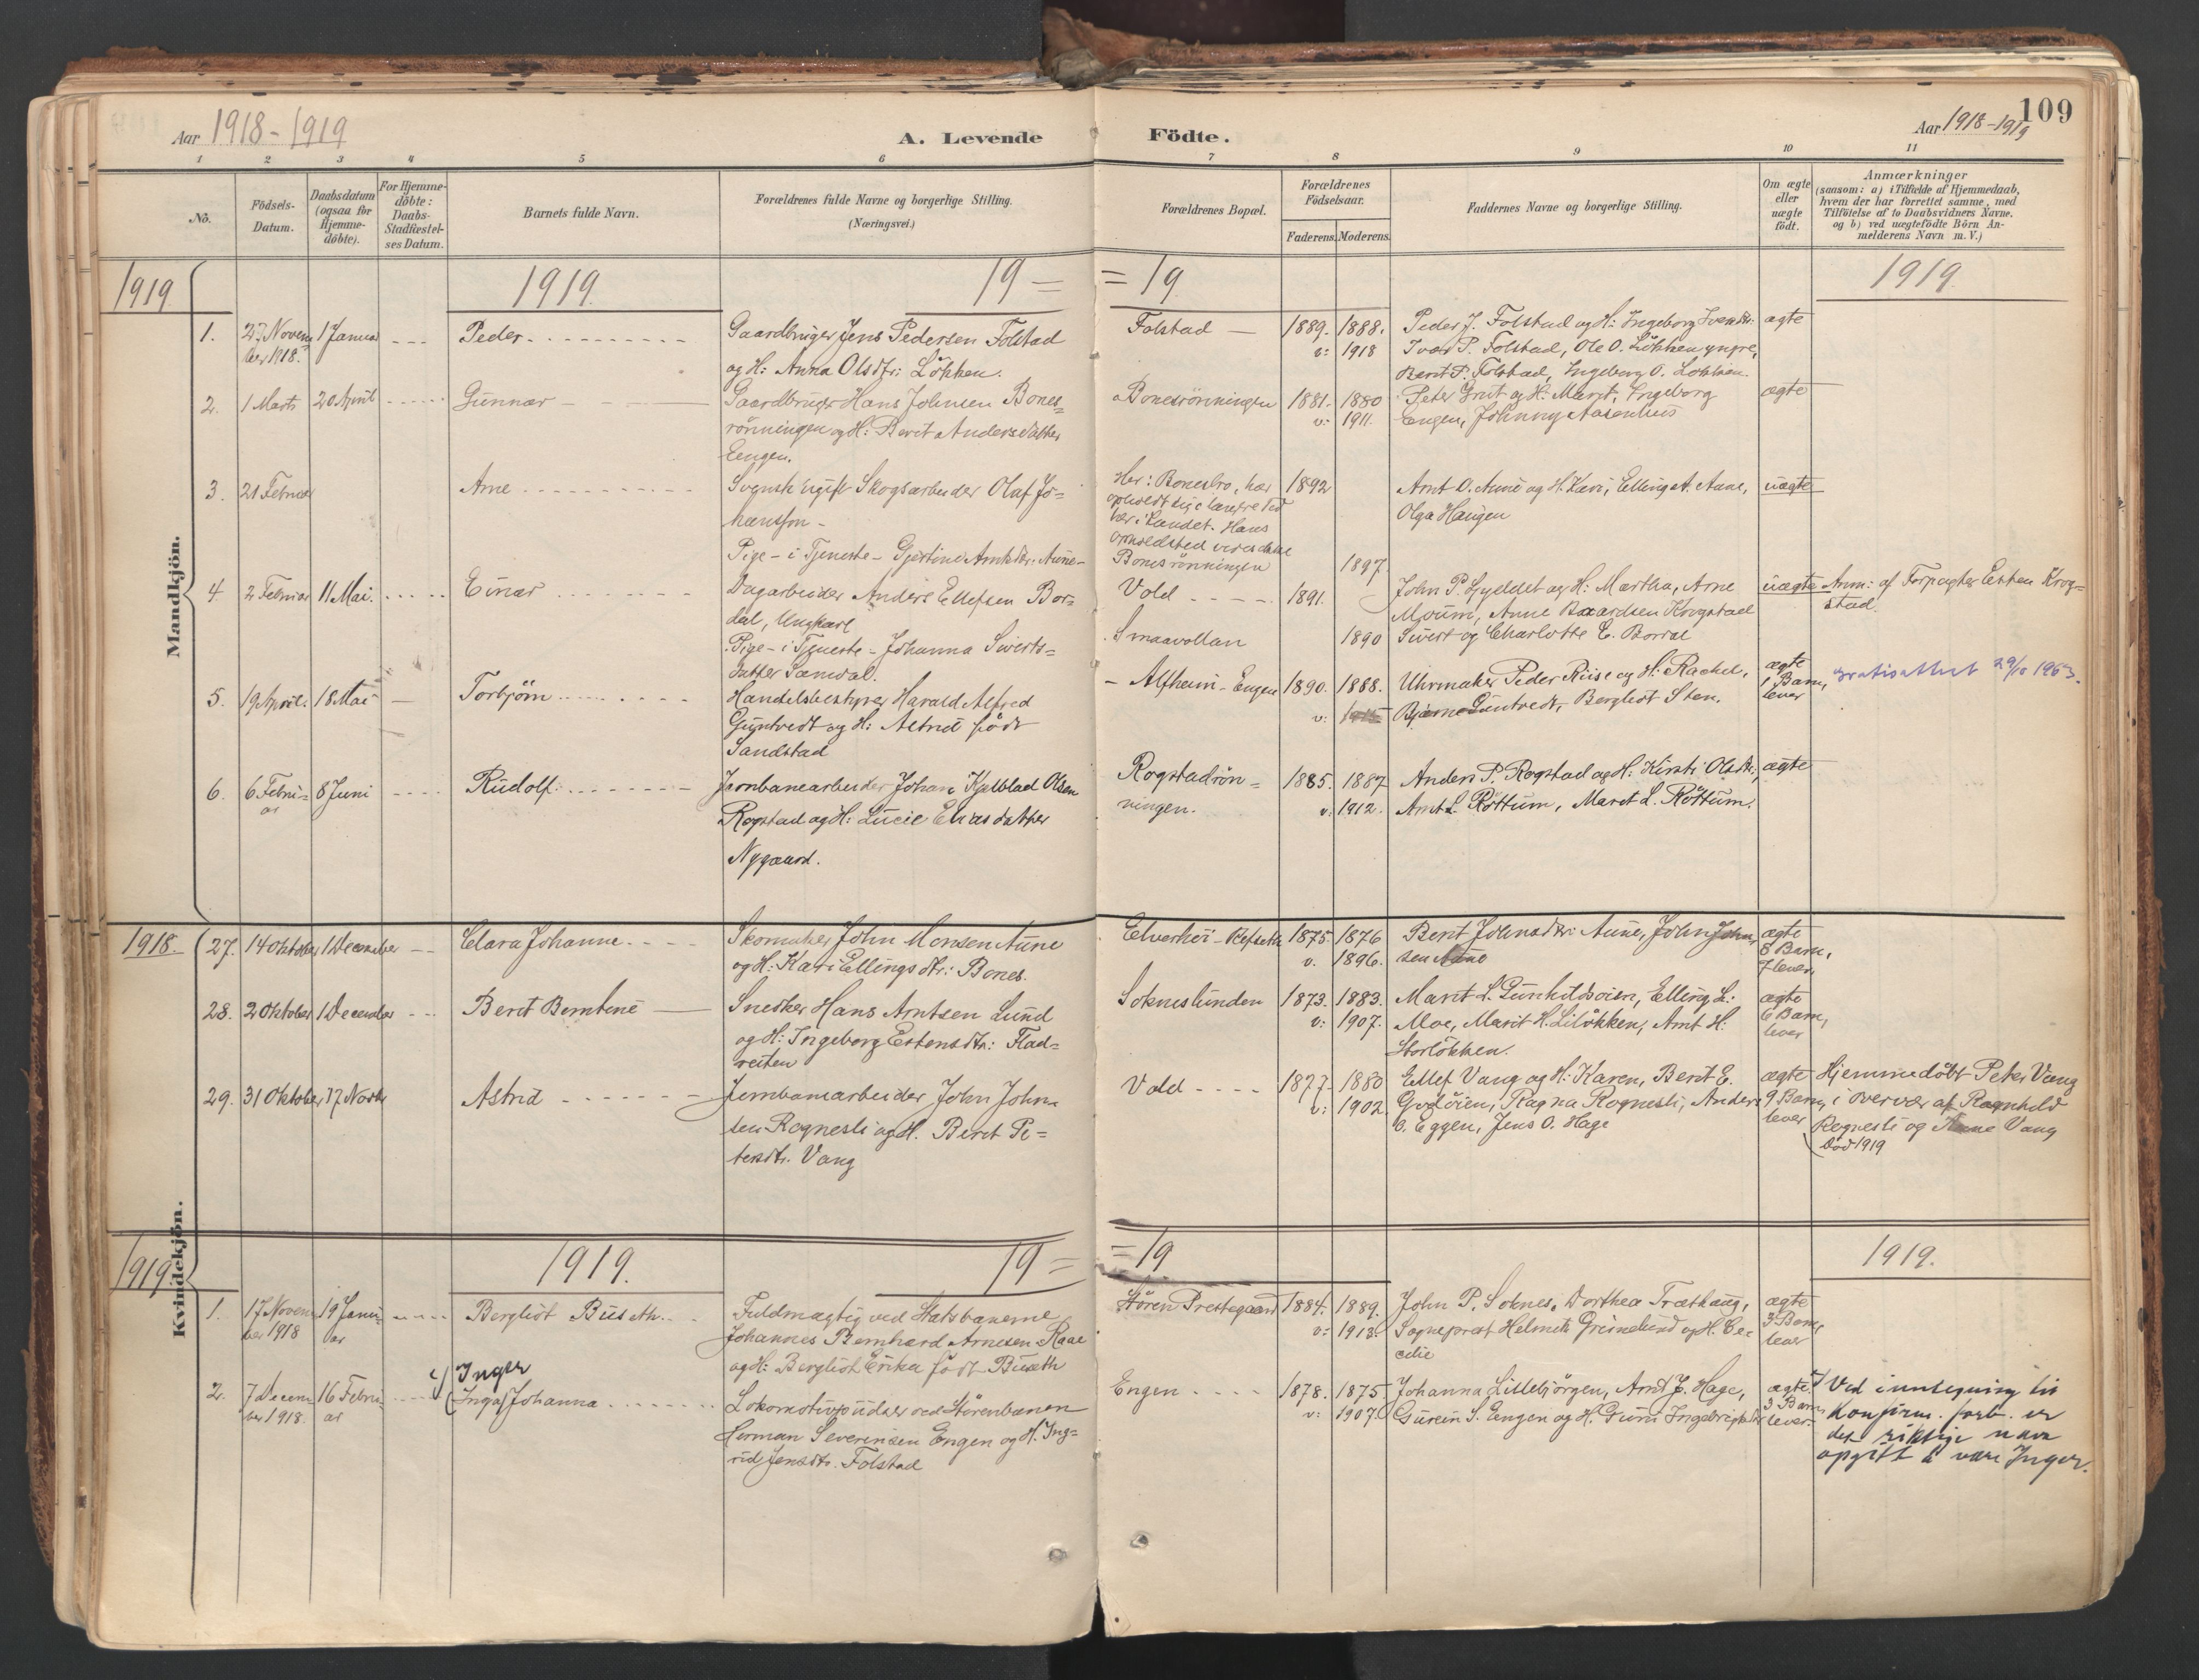 109
Aar 1918-1919
A. Levende
Födte.
Aar 1918-1919
1 2 3 4 5 6 7 8 9 10 11
No.
Födsels-
Datum.
Daabsdatum
(ogsaa for
Hjemme-
döbte).
For Hjemme-
döbte:
Daabs-
Stadfæstel-
ses Datum.
Barnets fulde Navn.
Forældrenes fulde Navne og borgerlige Stilling.
(Næringsvei.)
Forældrenes Bopæl.
Forældrenes
Födselsaar.
Faderens. Moderens.
Faddernes Navne og borgerlige Stilling.
Om ægte
eller
uægte
födt.
Anmærkninger
(saasom: a) i Tilfælde af Hjemmedaab,
hvem der har forrettet samme, med
Tilföielse af to Daabsvidners Navne.
og b) ved uægtefödte Börn An-
melderens Navn m. V.)
Mandkjön.
1919 1919. 19 = = 19 1919.
1. 27 Novem
ber 1918. 1 Januar Peder
Gaardbruger Jens Pedersen Folstad
og H: Anna Olsdtr: Lökken.
Folstad 1889. 1888.
v: 1918
Peder J. Folstad og H: Ingeborg
Ivar P. Folstad, Ole O. Lökken yngre,
Berit P. Folstad, Ingeborg O. Lökken.
ægte
2. 1 Marts 20 April Gunnar
Gaardbruger Hans Johnsen Bones-
rönningen og H: Berit Andersdatter
Eengen.
Bonesrönningen 1881. 1880
v: 1911.
Peter Grut og H: Marit, Ingeborg
Engen, Johnny Aasenhus
ægte
3. 21 Februar Arne
Svensk ugift Skogsarbeider Olaf Jo-
hansson -
Pige - i Tjeneste - Gjertine Arntsdtr. Aune -
Her: Bonesbro, har
opholdt sig i længre Tid
her i Landet. Hans
opholdsted vides ikke
Bonesrönningen
1892
1897.
Arnt O. Aune og H. Kari, Elling A. Aune,
Olga Haugen
uægte
4. 2 Februar 11 Mai. Einar
Dagarbeider Anders Ellefsen Bor-
dal, Ungkarl
Pige - i Tjeneste - Johanna Siverts-
datter Samdal.
Vold
Smaavollan
1891.
1890
John P. Gylldet og H: Martha, Arne
Moum, Anne Baardsen Krogstad
Sivert og Charlotte E. Bordal
uægte
Anm: af Forpagter Esten Krog-
stad.
5. 19 April. 18 Mai Torbjörn
Handelsbestyrer Harald Alfred
Guntvedt og H: Astrid född
Sandstad
Alfheim - Engen 1890. 1888.
v: 1915
Uhrmaker Peder Riise og H: Rachel,
Bjarne Guntvedt, Bergliot Sten.
ægte
1 Barn,
lever
gratisattest 29/10 1963.
6. 6 Febru-
ar 8 Juni Rudolf
Jernbanearbeider Johan Kjelblad Olsen
Rogstad og H: Lucie Eliasdatter
Nygaard.
Rogstadrön-
ningen.
1885. 1887
v: 1912.
Anders P. Rogstad og H: Kirsti Olsdtr.,
Arnt L. Röttum, Marit L. Röttum.
ægte
Kvindekjön.
1918.
27. 14 Oktober 1 December Clara Johanne
Skomaker John Monsen Aune
og H: Kari Ellingsdtr: Bones.
Elverhöi - Refseth 1875. 1876
v. 1896.
Berit Johnsdtr: Aune, John John-
sen Aune
ægte
8 Barn,
7 lever,
28. 2 Oktober 1 December Berit Berntine
Snedker Hans Arntsen Lund
og H: Ingeborg Estensdtr: Flad-
reiten
Sokneslunden 1873. 1883.
v: 1907.
Marit L. Gunhildsöien, Elling L:
Moe, Marit H. Lilökken, Arnt H:
Storlökken.
ægte
6 Barn,
lever
29. 31 Oktober 17 Novbr Astrid
Jernbanearbeider John John-
sen Rognesli og H. Berit Pe-
tersdtr. Vang
Vold 1877. 1880
v: 1902.
Ellef Vang og H: Karen, Berit E.
Godöien, Ragna Rognesli, Anders
O. Eggen, Jens O. Hage
ægte
9 Barn,
lever
Hjemmedöbt Peter Vang
i overvær af Ragnhild
Rognesli og Anne Vang
Död 1919
1919. 1919. 19 = = 19 1919.
1. 17 Novem
ber 1918 19 Janu-
ar Bergliot Buseth
Fuldmægtig ved Statsbanerne
Johannes Bernhard Arnesen Raae
og H: Bergliot Erika född Buseth
Stören Prestegaard 1884. 1889.
v: 1913.
John P. Soknes, Dorthea Træthaug,
Sogneprest Helmuth Greinelund og H: Ce-
cilie
ægte
3 Barn,
lever
2. 7 Decem
ber 1918. 16 Febru-
ar
x) Inger
(Inga) Johanna
Lokomotivpudser ved Störenbanen
Herman Severinsen Engen og H. Ing-
rid Jensdtr. Folstad
Engen 1878. 1875
v: 1907.
Johanna Lillebjörgen, Arnt J. Hage,
Gurein S. Engen og H. Guni Ingebrigtsdtr
ægte.
3 Barn,
lever
x) Ved inntegning til
Konfirm. forb. er
det riktige navn
opgitt å være Inger.